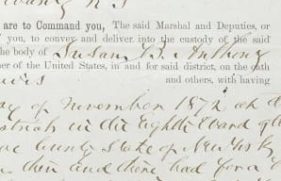 are to Command you, The said Marshal and Deputies, or
you, to convey and deliver into the custody of the said
the body of Susan B. Anthony
er of the United States, in and for said district, on the oath
and others, with having
day of November 1872 at
in the Eighth Ward of
County State of New York
then and there had for a